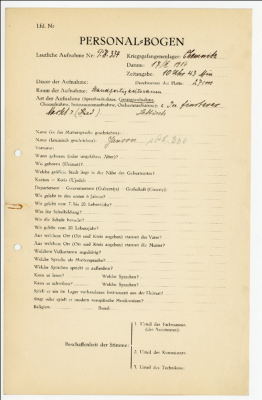 Lfd. Nr
PERSONAL-BOGEN
Lautliche Aufnahme Nr.: P.K. 334 Kriegsgefangenenlager: Chemnitz
Datum:
Zeitangabe: 10 Uhr 43 Min
Dauer der Aufnahme: Durchmesser der Platte: 27 cm
Raum der Aufnahme:
Art der Aufnahme (Sprechaufnahme, Gesangsaufnahme,
Choraufnahme, Instrumentenaufnahme, Orchesteraufnahme): In finsterer
Nacht (Lied)
Name (in der Muttersprache geschrieben):
Name (lateinisch geschrieben): Janson
Vorname:
Wann geboren (oder ungefähres Alter)?
Wo geboren (Heimat)?
Welche größere Stadt liegt in der Nähe des Geburtsortes?
Kanton — Kreis (Ujedz):
Departement — Gouvernement (Gubernija) — Grafschaft (County):
Wo gelebt in den ersten 6 Jahren?
Wo gelebt vom 7. bis 20. Lebensjahr?
Was für Schulbildung?
Wo die Schule besucht?
Wo gelebt vom 20. Lebensjahr?
Aus welchem Ort (Ort und Kreis angeben) stammt der Vater?
Aus welchem Ort (Ort und Kreis angeben) stammt die Mutter?
Welchem Volksstamm angehörig?
Welche Sprache als Muttersprache?
Welche Sprachen spricht er außerdem?
Kann er lesen? Welche Sprachen?
Kann er schreiben? Welche Sprachen?
Spielt er ein im Lager vorhandenes Instrument aus der Heimat?
Singt oder spielt er modern europäische Musikweisen?
Religion: Beruf:
Beschaffenheit der Stimme:
1. Urteil des Fachmannes
(des Assistenten):
2. Urteil des Kommissars:
3. Urteil des Technikers: